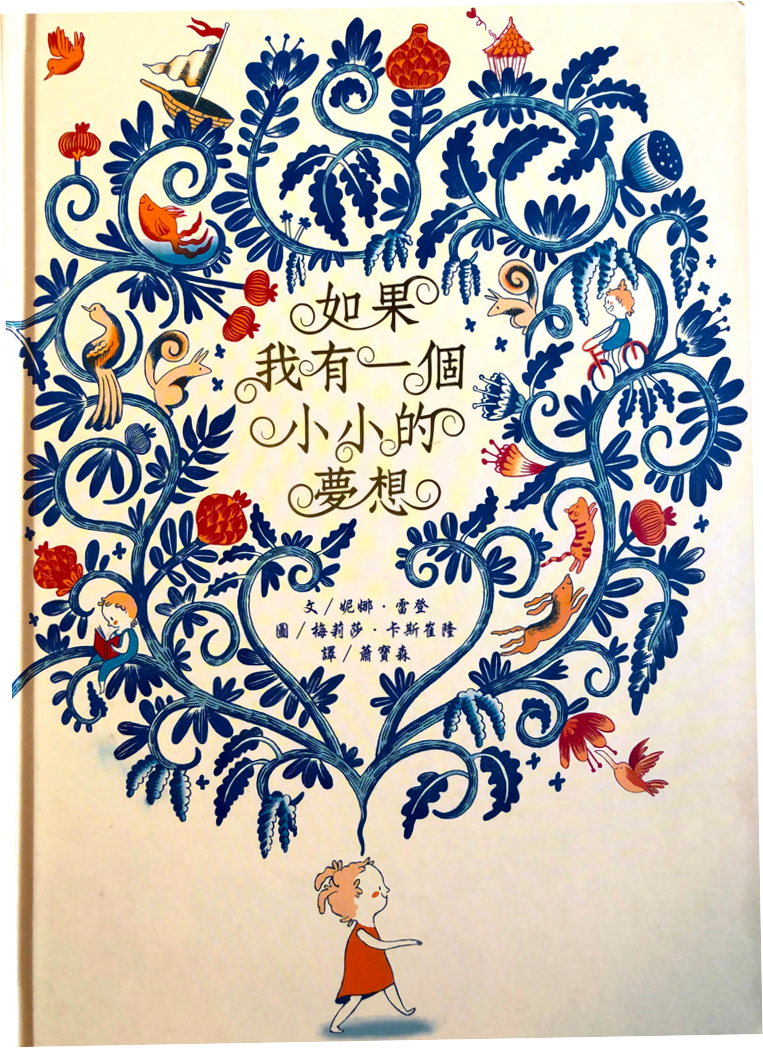 如果
我有一個
小小的
夢想
文/妮娜·雷登
圖/梅莉莎·卡斯崔隆
譯/蕭寶森